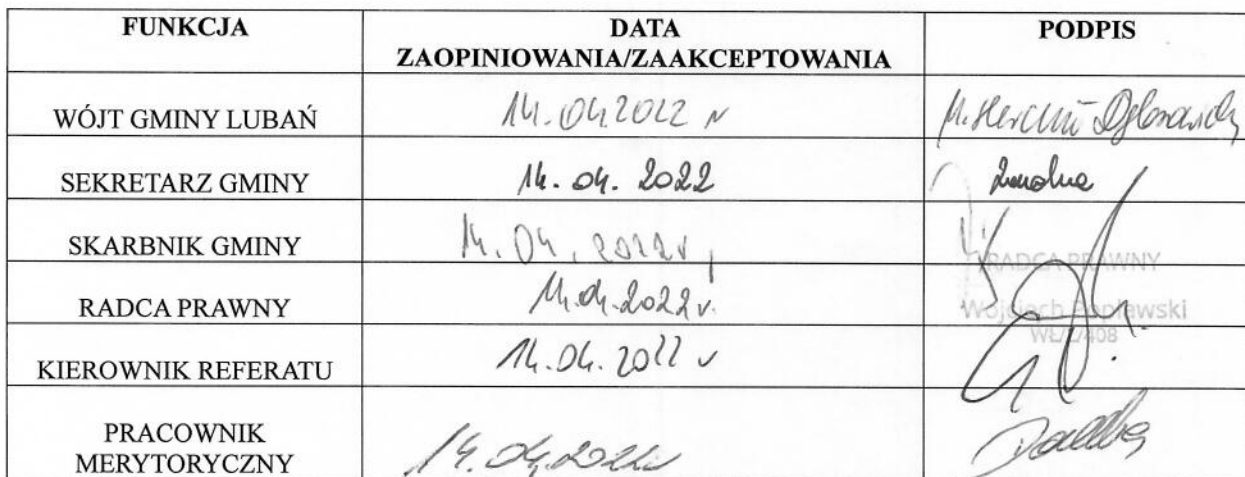 FUNKCJA DATA PODPIS
ZAOPINIOWANIA/ZAAKCEPTOWANIA
WÓJT GMINY LUBAŃ 14.04.2022 r
SEKRETARZ GMINY 14. 04. 2022
SKARBNIK GMINY 14. 04. 2022 r
RADCA PRAWNY
Wojciech Popławski
RADCA PRAWNY 14.04.2022 r.
KIEROWNIK REFERATU 14.04.2022 r
PRACOWNIK
MERYTORYCZNY 14.04.2022